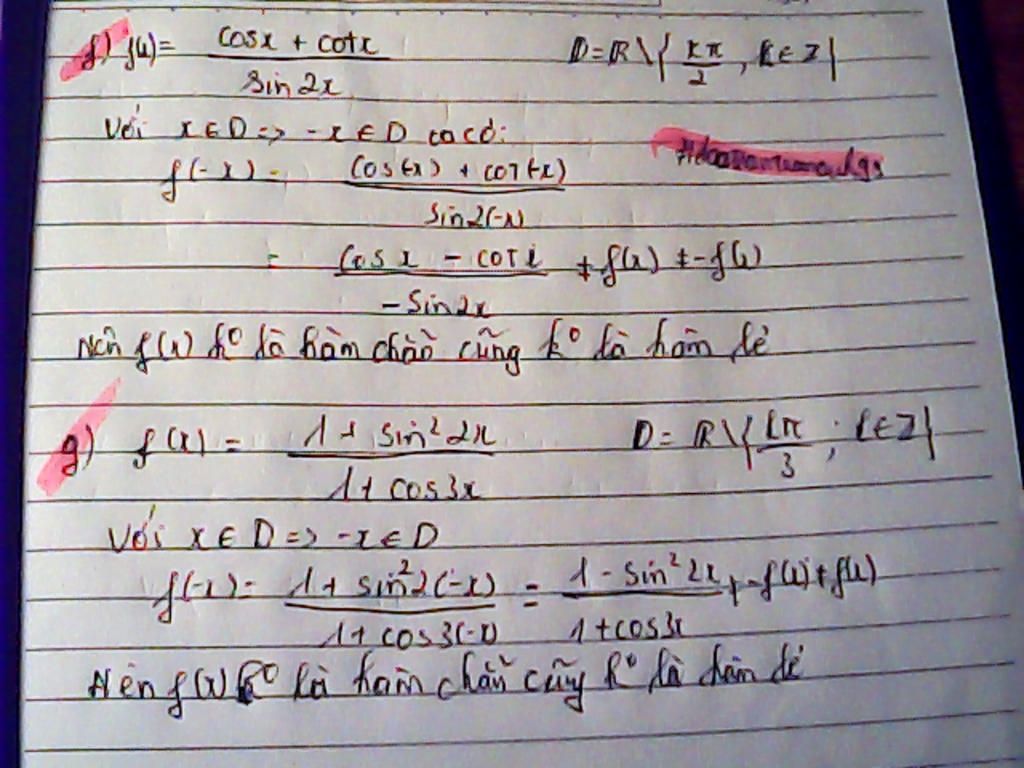 f) f(x) = (cosx + cotx) / sin2x D = R \ { kπ/2 , k ∈ Z }
Với x ∈ D => -x ∈ D ta có:
f(-x) = (cos(-x) + cot(-x)) / sin2(-x)
= (cosx - cotx) / -sin2x ≠ f(x) ≠ -f(x)
Nên f(x) k° là hàm chẵn cũng k° là hàm lẻ
g) f(x) = (1 + sin²2x) / (1 + cos3x) D = R \ { kπ/3 ; k ∈ Z }
Với x ∈ D => -x ∈ D
f(-x) = (1 + sin²2(-x)) / (1 + cos3(-x)) = (1 - sin²2x) / (1 + cos3x) ≠ -f(x) ≠ f(x)
Nên f(x) k° là hàm chẵn cũng k° là hàm lẻ